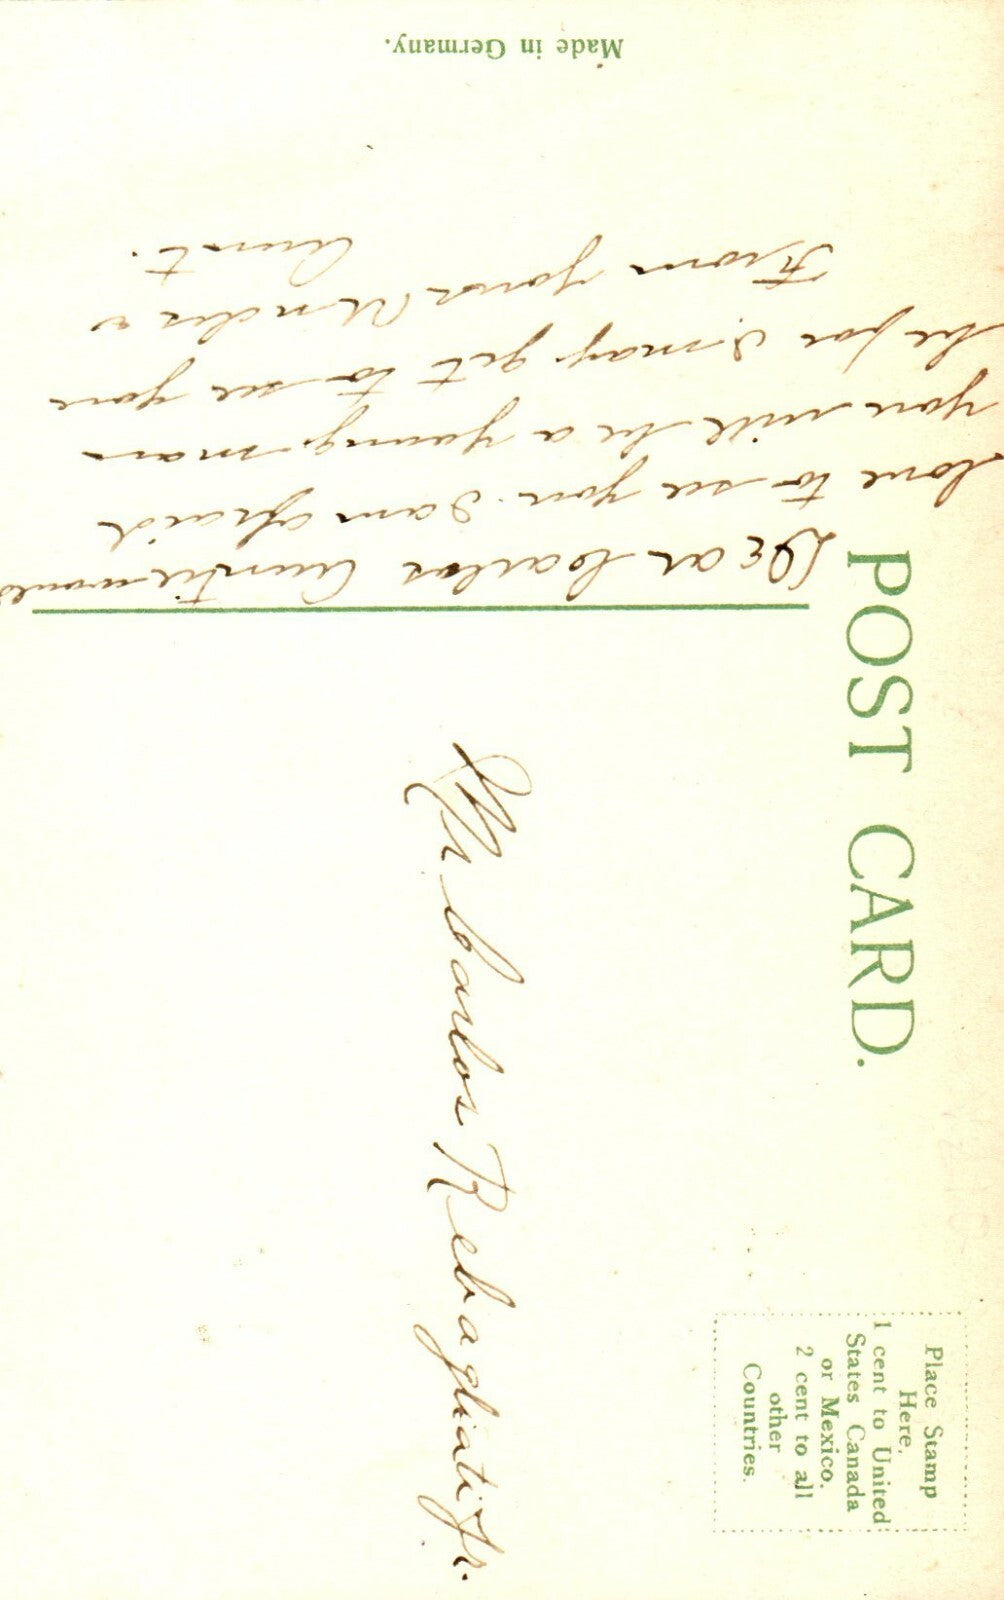 POST CARD.
Place Stamp
Here.
1 cent to United
States Canada
or Mexico.
2 cent to all
other
Countries.
Made in Germany.
Dear Carlos Auntie would
love to see you. I am afraid
you will be a young man
be for I may get to see you
From your Uncle &
Aunt.
Mr Carlos Rebagliati Jr.